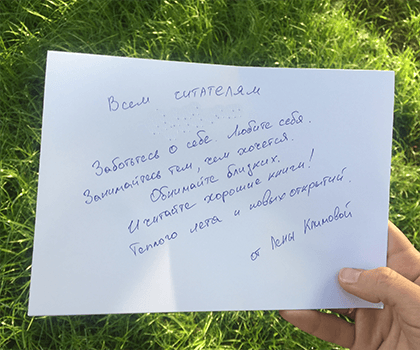 Всем читателям
Заботьтесь о себе. Любите себя.
Занимайтесь тем, чем хочется.
Обнимайте близких.
И читайте хорошие книги!
Теплого лета и новых открытий.
от Лены Климовой